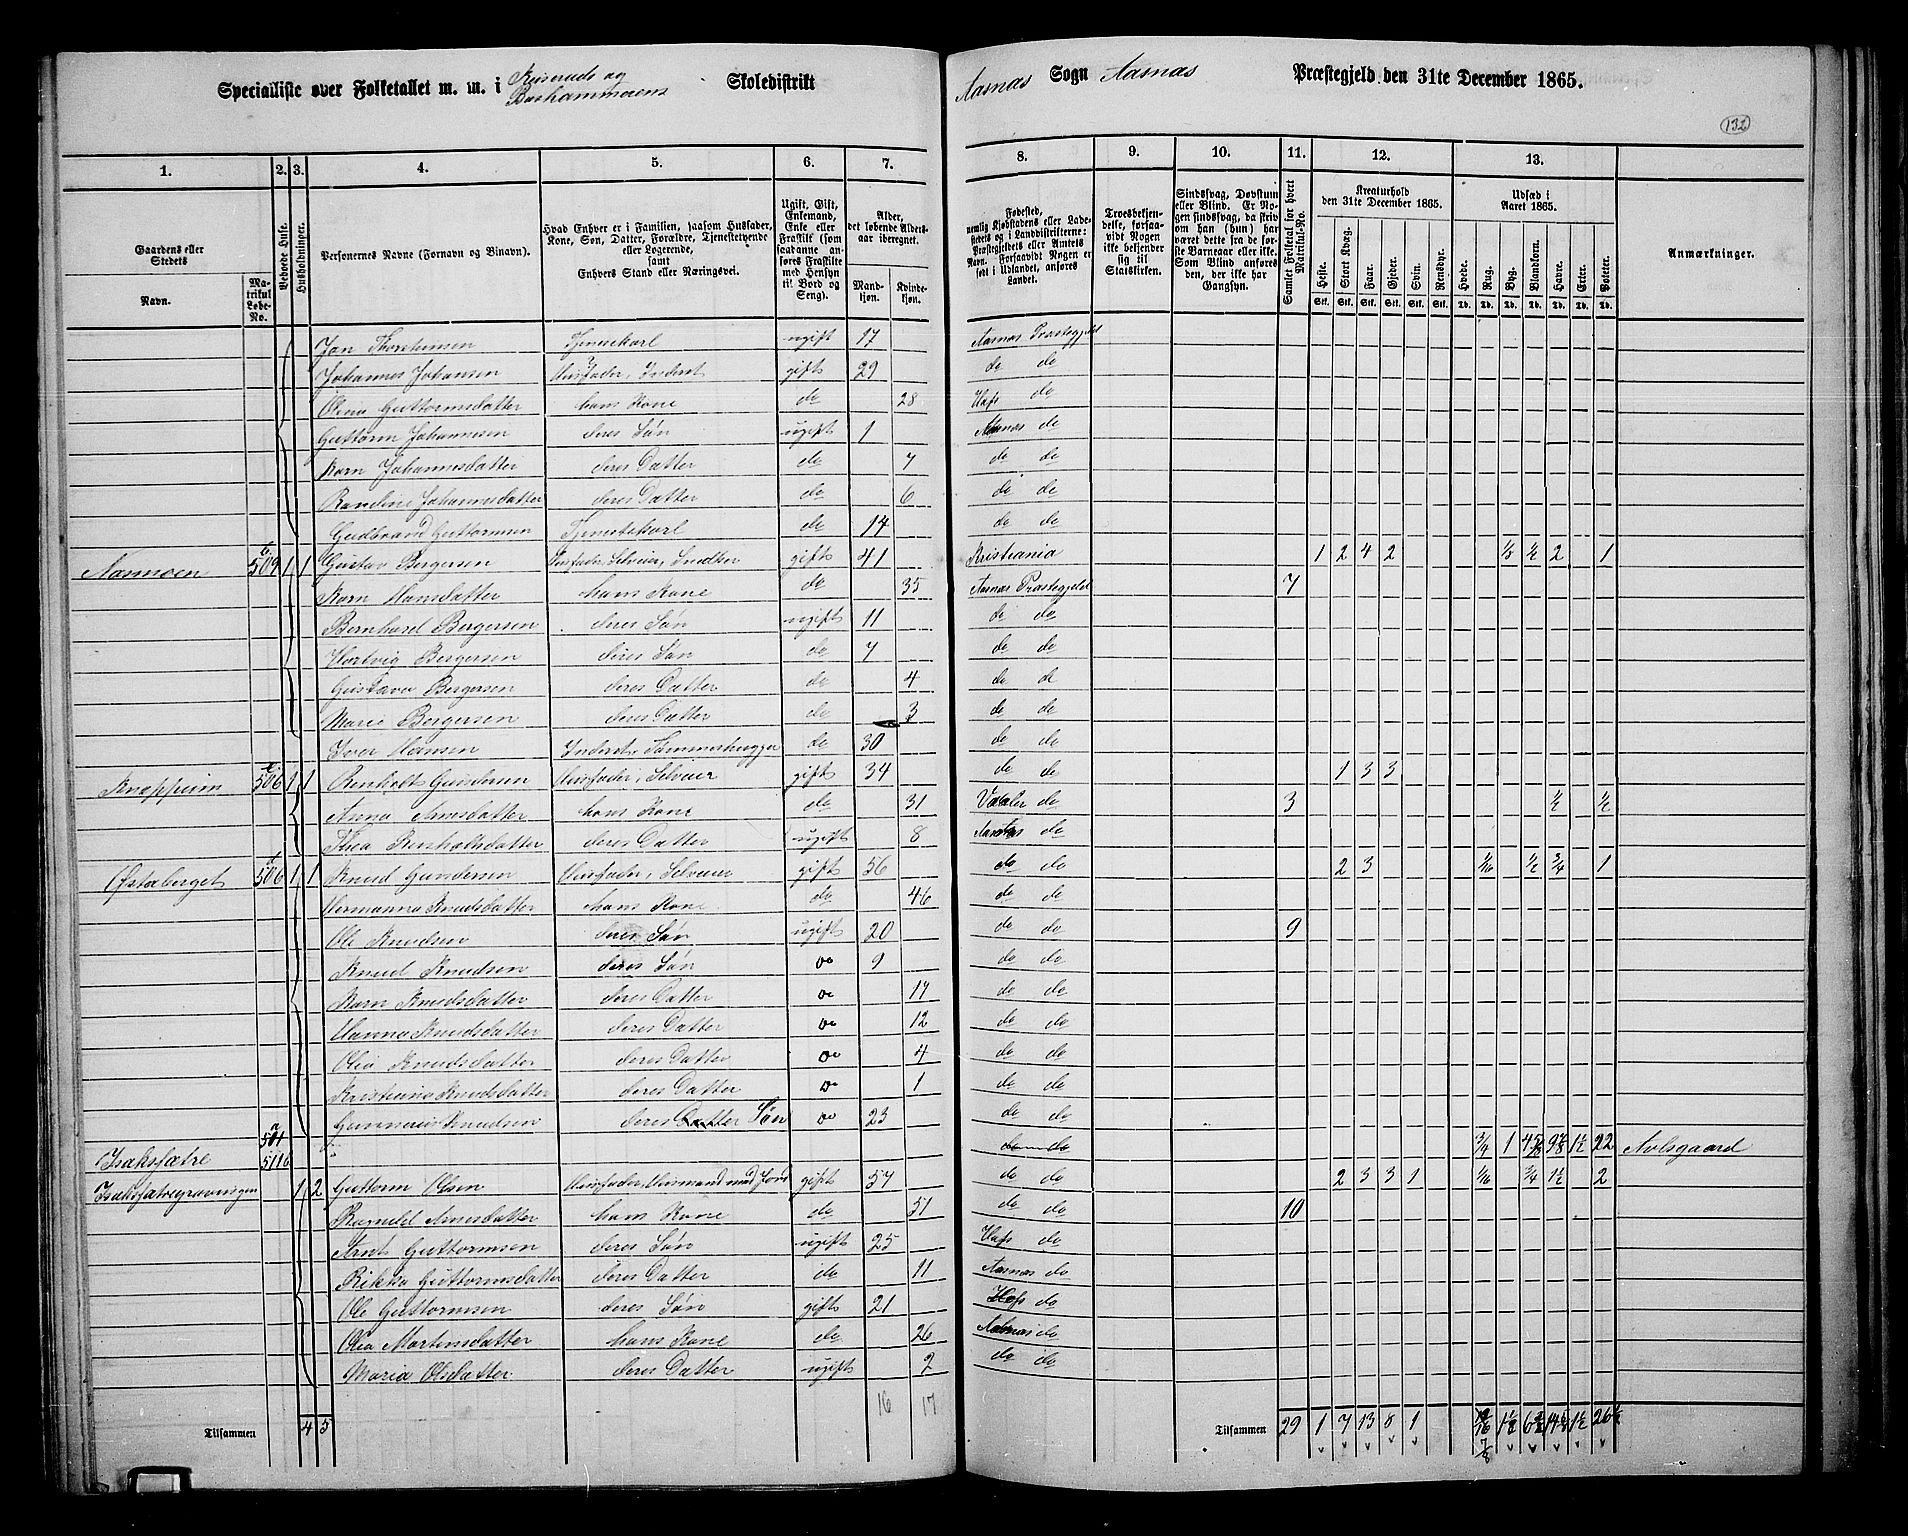 Specialliste over Folketallet m. m. i Skoledistrikt
Aasnas Sogn Aasnas Præstegjeld den 31te December 1865.
132
1. 2. 3. 4. 5. 6. 7. 8. 9. 10. 11. 12. 13.
Gaardens eller Stedets Navn. Matrikul Løbe-No. Beboede Huse. Husholdninger.
Personernes Navne (Fornavn og Binavn).
Hvad Enhver er i Familien, saasom Husfader, Kone, Søn, Datter, Forældre, Tjenestetyende eller Logerende, samt Enhvers Stand eller Næringsvei.
Ugift, Gift, Enkemand, Enke eller Fraskilt (som saadanne anføres Fraskilte med Hensyn til Bord og Seng).
Alder, det løbende Aldersaar iberegnet. Mandkjøn. Kvindekjøn.
Fødested, nemlig Kjøbstadens eller Ladestedets og i Landdistrikterne: Præstegjeldets eller Amtets Navn. Forsaavidt Nogen er født i Udlandet, anføres Landet.
Troesbekjendelse, forsaavidt Nogen ikke bekjender sig til Statskirken.
Sindssvag, Døvstum eller Blind.
Samlet Folketal for hvert Matrikul-No.
Kreaturhold den 31te December 1865. Heste. Stort Kvæg. Faar. Gjeder. Svin. Rensdyr.
Udsæd i Aaret 1865. Hvede. Rug. Byg. Blandkorn. Havre. Erter. Poteter.
Anmærkninger.
Jon Thorstensen Tjenestekarl ugift 17 Aasnas Præstegjeld
Johannes Johansen Husfader, Inderst gift 29 do do
Olena Guttormsdatter hans Kone do 28 Hofs do
Guttorm Johannesen deres Søn ugift 1 Aasnas do
Karn Johannesdatter deres Datter do 7 do do
Randine Johannesdatter deres Datter do 6 do do
Gudbrand Guttormsen Tjenestekarl do 14 do do
Aasmoen 509 1 1 Gustav Bergersen Husfader, Selveier, Snedker gift 41 Kristiania 1 2 4 2 ½ 2 1
Karn Hansdatter hans Kone do 35 Aasnas Præstegjeld 7
Bernhard Bergersen deres Søn ugift 11 do do
Hartvig Bergersen deres Søn do 7 do do
Gustava Bergersen deres Datter do 4 do do
Marie Bergersen deres Datter do 3 do do
Iver Hansen Inderst, Tømmerhugger do 30 do do
506 1 1 Renholt Gundersen Husfader, Selveier gift 34 do do 1 3 3
Anna Arnesdatter hans Kone do 31 Vaaler do 3 ½ ½
Thea Renholtsdatter deres Datter ugift 8 Aasnas do
Østaberget 506 1 1 Knud Gundersen Husfader, Selveier gift 56 do do 2 3 1/16 ½ ¾ 1
Hermanna Knudsdatter hans Kone do 46 do do
Ole Knudsen deres Søn ugift 20 do do 9
Knud Knudsen deres Søn do 9 do do
Karn Knudsdatter deres Datter do 17 do do
Hanna Knudsdatter deres Datter do 12 do do
Olia Knudsdatter deres Datter do 4 do do
Kristiana Knudsdatter deres Datter do 1 do do
Gunnerius Knudsen deres Datter Søn do 23 do do
Isaksætre 501 a 511 b do do ¾ 1 1½ 22 Avlsgaard
Isaksætregravningen 1 2 Guttorm Olsen Husfader, Husmand med Jord gift 57 do do 2 3 3 1 1/16 ¾ 1½ 2
Ragnild Arnesdatter hans Kone do 51 do do 10
Arnt Guttormsen deres Søn ugift 25 Hofs do
Rikka Guttormsdatter deres Datter do 11 Aasnas do
Ole Guttormsen deres Søn gift 21 Hofs do
Olia Martinsdatter hans Kone do 26 Aasnas do
Maria Olsdatter deres Datter ugift 2 do do
16 17
Tilsammen 4 5 Tilsammen 29 1 7 13 8 1 1½ 1½ 26½
7/8